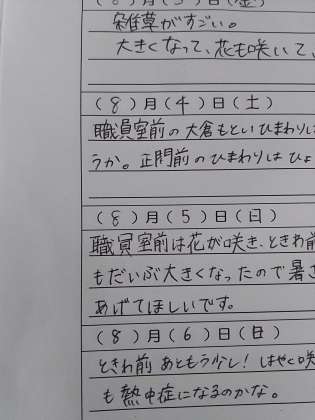 (8)月(3)日(金)
雑草がすごい。
大きくなって、花も咲いて、
(8)月(4)日(土)
職員室前の大倉もといひまわりは
うか。正門前のひまわりはひょ
(8)月(5)日(日)
職員室前は花が咲き、ときわ前
もだいぶ大きくなったので暑さ
あげてほしいです。
(8)月(6)日(日)
ときわ前 あともう少し! はやく咲
も熱中症になるのかな。